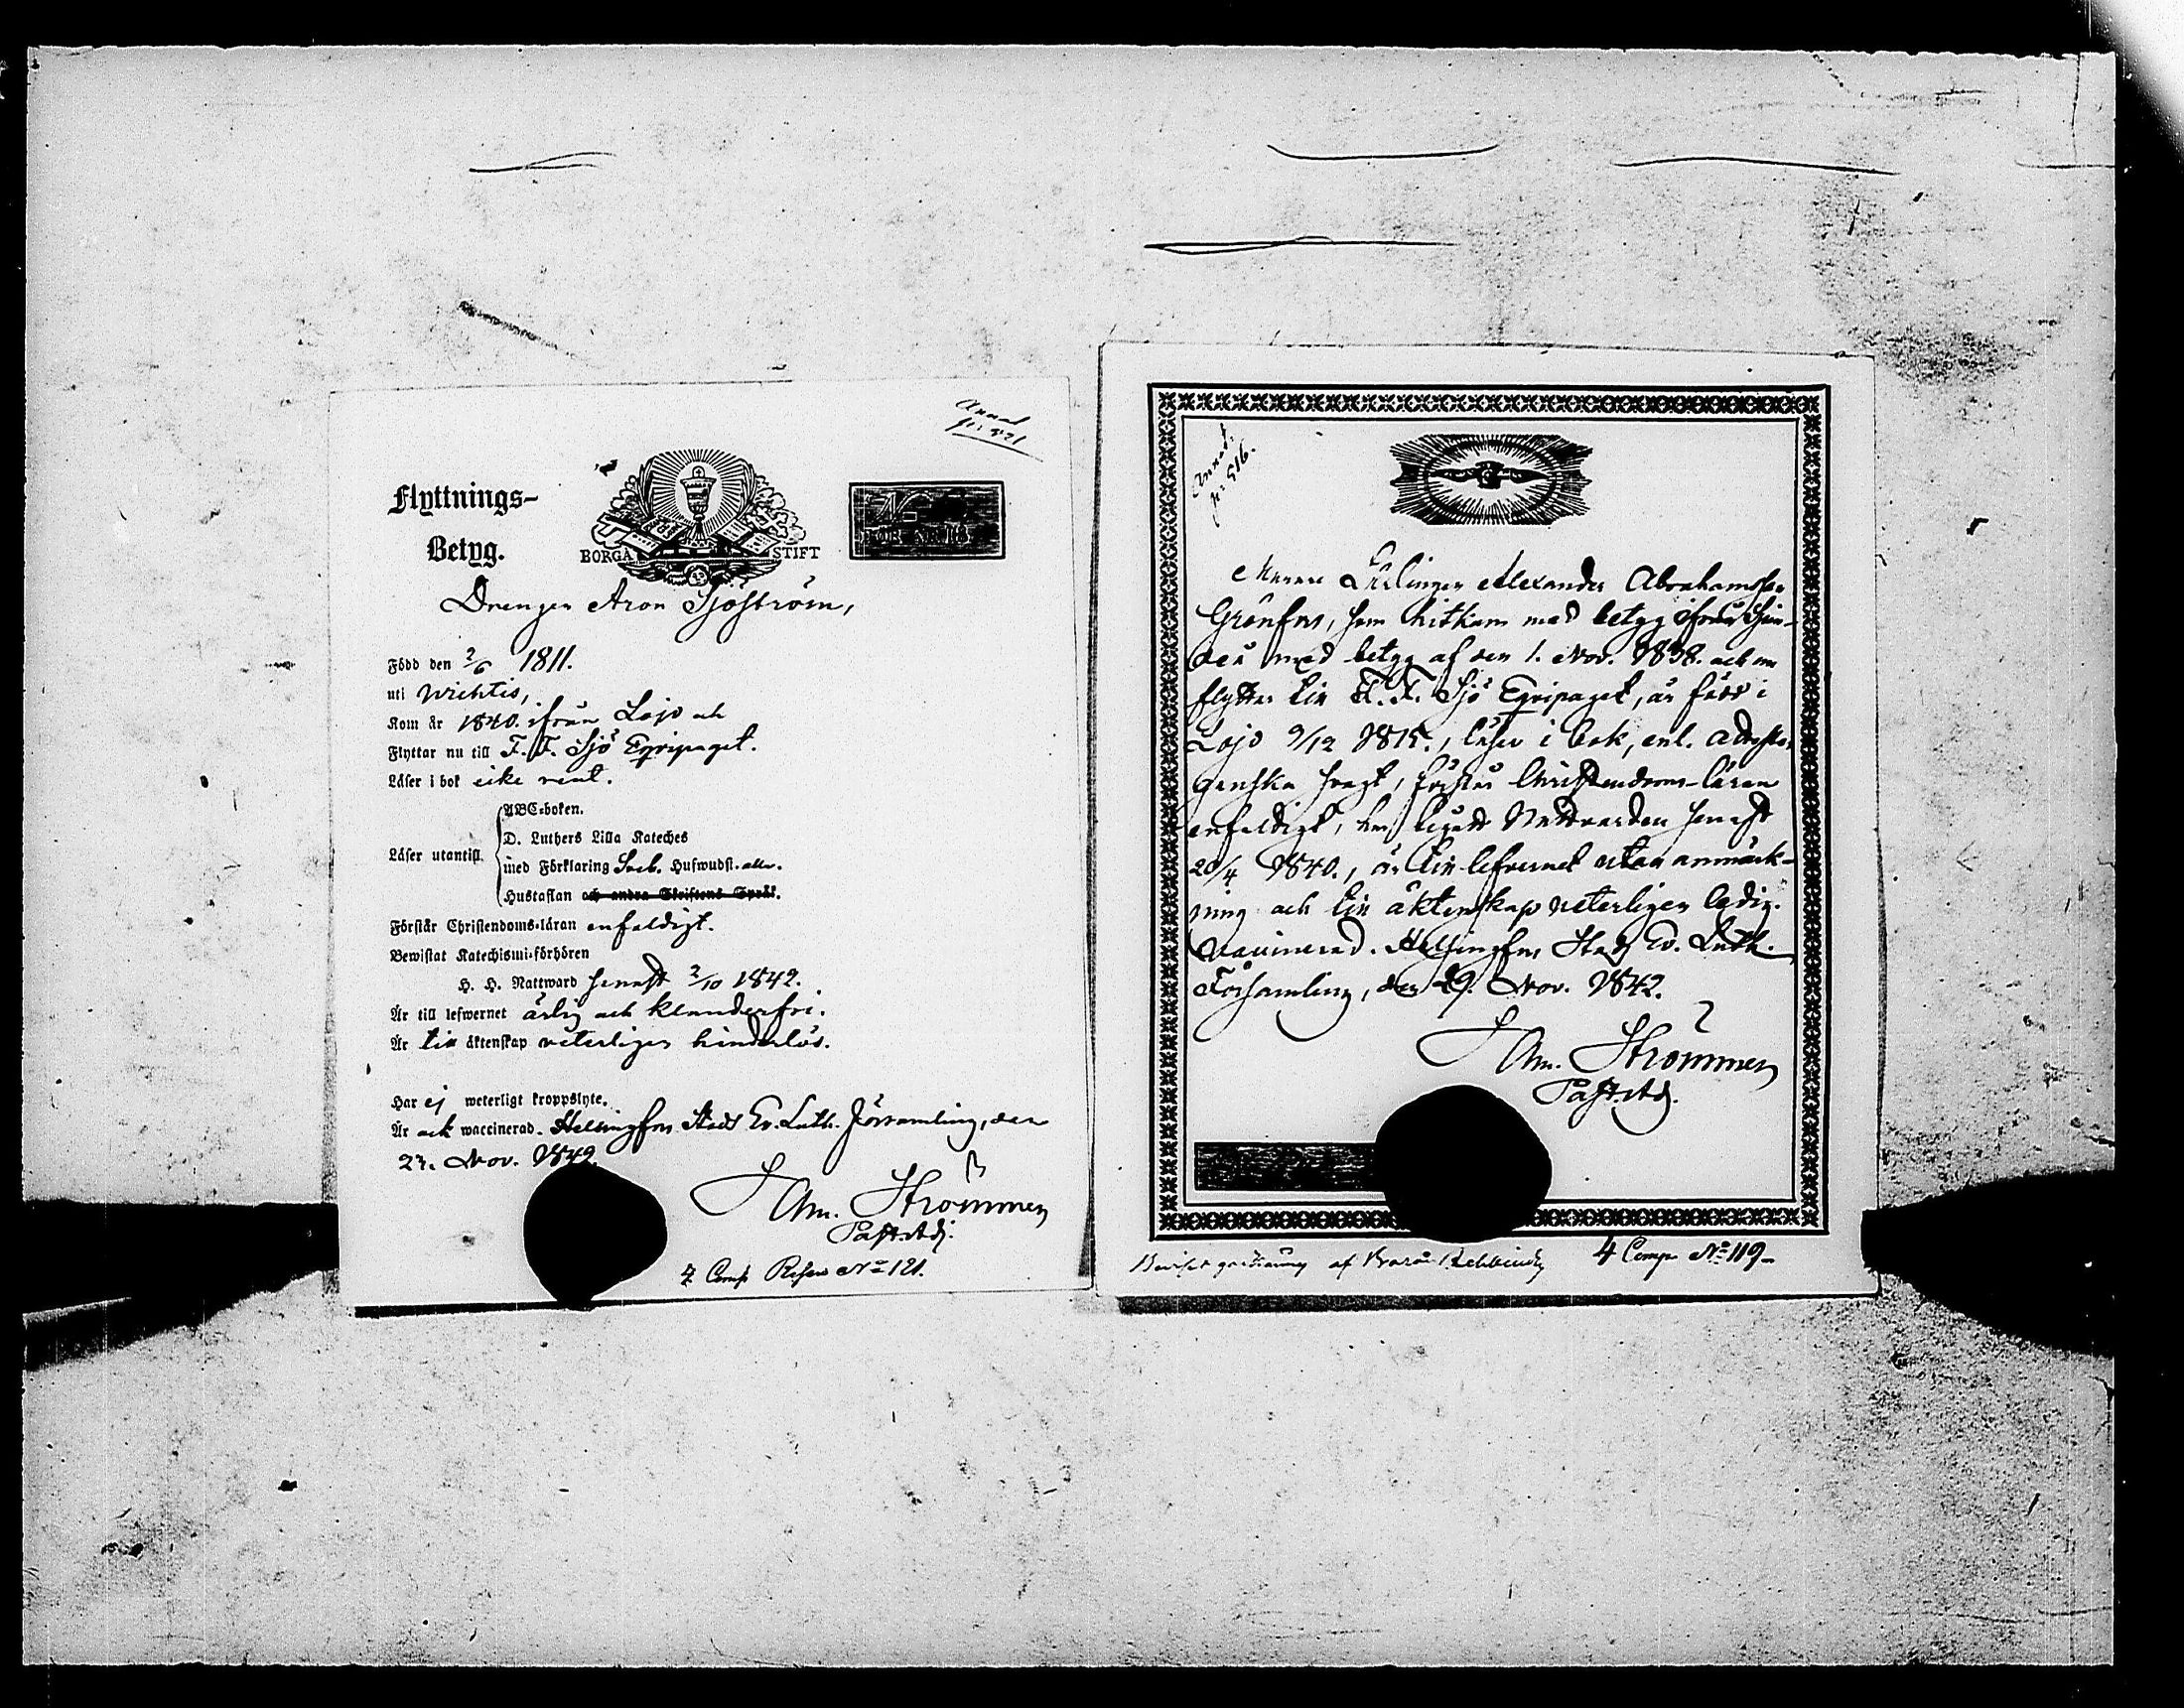 Annot
Flyttnings-
Betyg.
BORGÅ STIFT
Drengen Aron Sjöström,
Född den 2/6 1811.
uti Wichtis,
Kom år 1840. ifrån Lojo och
Flyttar nu till F. F. Sjö Eqvipaget.
Läser i bok icke rent.
Läser utantill
ABC-boken.
D. Luthers Lilla Kateches
med Förklaring Sveb. Hufwudst. alla.
Hustaflan och andra Skriftens Språk.
Förstår Christendoms-läran enfaldigt.
Bewistat Katechismi-förhören
H. H. Nattward senast 2/10 1842.
Är till lefwernet ärlig och klanderfri.
Är till äktenskap veterligen hinderlös.
Har ej weterligt kroppslyte.
Är ock waccinerad. Helsingfors Stads Ev. Luth. Församling, den
23. Nov. 1842.
Am. Strömmer
Past. Adj.
Comp. Reserv No 121.
Annot.
p: 516.
Alexander Abrahamsson
Grönfors, som hitkom med betyg ifrån
med betyg af den 1. Nov. 1838. och nu
flyttar till F. F. Sjö Eqvipaget, är född i
Lojo 9/12 1815., läser i bok, enl.
ganska svagt, förstår Christendoms-läran
enfaldigt, har begått Nattvarden senast
20/4 1840., är till lefvernet utan anmärk-
ning och till äktenskap veterligen ledig.
Vaccinerad. Helsingfors Stads Ev. Luth.
Församling, den 29. Nov. 1842.
Am. Strömmer
Past. Adj.
af Baron Rehbinder
4 Comp. No 119